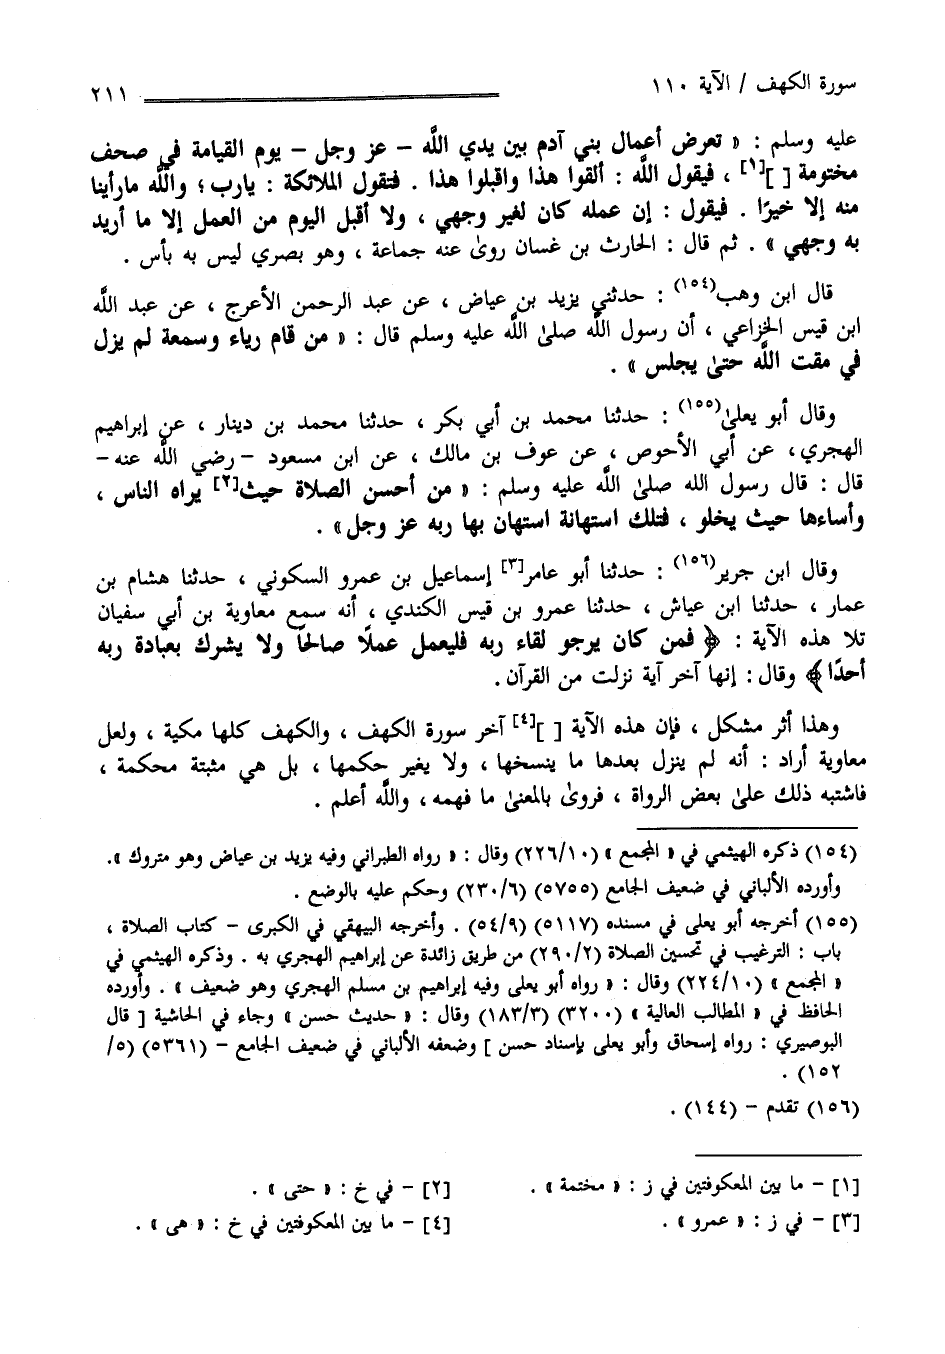 سورة الكهف / الآية ١١٠ ٢١١
عليه وسلم : « تعرض أعمال بني آدم بين يدي اللَّه – عز وجل – يوم القيامة في صحف
مختومة [ ][١] ، فيقول اللَّه : ألقوا هذا واقبلوا هذا . فتقول الملائكة : يارب ؛ واللَّه مارأينا
منه إلا خيرًا . فيقول : إن عمله كان لغير وجهي ، ولا أقبل اليوم من العمل إلا ما أريد
به وجهي » . ثم قال : الحارث بن غسان روىٰ عنه جماعة ، وهو بصري ليس به بأس .
قال ابن وهب(١٥٤) : حدثني يزيد بن عياض ، عن عبد الرحمن الأعرج ، عن عبد اللَّه
ابن قيس الخزاعي ، أن رسول اللَّه صلىٰ اللَّه عليه وسلم قال : « من قام رياء وسمعة لم يزل
في مقت اللَّه حتىٰ يجلس » .
وقال أبو يعلىٰ(١٥٥) : حدثنا محمد بن أبي بكر ، حدثنا محمد بن دينار ، عن إبراهيم
الهجري، عن أبي الأحوص ، عن عوف بن مالك ، عن ابن مسعود – رضي اللَّه عنه –
قال : قال رسول الله صلىٰ اللَّه عليه وسلم : « من أحسن الصلاة حيث[٢] يراه الناس ،
وأساءها حيث يخلو ، فتلك استهانة استهان بها ربه عز وجل» .
وقال ابن جرير(١٥٦) : حدثنا أبو عامر[٣] إسماعيل بن عمرو السكوني ، حدثنا هشام بن
عمار ، حدثنا ابن عياش ، حدثنا عمرو بن قيس الكندي ، أنه سمع معاوية بن أبي سفيان
تلا هذه الآية : ﴿ فمن كان يرجو لقاء ربه فليعمل عملًا صالحًا ولا يشرك بعبادة ربه
أحدًا﴾ وقال : إنها آخر آية نزلت من القرآن .
وهذا أثر مشكل ، فإن هذه الآية [ ][٤] آخر سورة الكهف ، والكهف كلها مكية ، ولعل
معاوية أراد : أنه لم ينزل بعدها ما ينسخها ، ولا يغير حكمها ، بل هي مثبتة محكمة ،
فاشتبه ذلك علىٰ بعض الرواة ، فروىٰ بالمعنىٰ ما فهمه، واللَّه أعلم .
(١٥٤) ذكره الهيثمي في « المجمع » (٢٢٦/١٠) وقال : « رواه الطبراني وفيه يزيد بن عياض وهو متروك ».
وأورده الألباني في ضعيف الجامع (٥٧٥٥) (٢٣٠/٦) وحكم عليه بالوضع .
(١٥٥) أخرجه أبو يعلى في مسنده (٥١١٧) (٥٤/٩) . وأخرجه البيهقي في الكبرى – كتاب الصلاة ،
باب : الترغيب في تحسين الصلاة (٢٩٠/٢) من طريق زائدة عن إبراهيم الهجري به . وذكره الهيثمي في
« المجمع » (٢٢٤/١٠) وقال : « رواه أبو يعلى وفيه إبراهيم بن مسلم الهجري وهو ضعيف » . وأورده
الحافظ في « المطالب العالية » (٣٢٠٠) (١٨٣/٣) وقال : « حديث حسن » وجاء في الحاشية [ قال
البوصيري : رواه إسحاق وأبو يعلى بإسناد حسن ] وضعفه الألباني في ضعيف الجامع – (٥٣٦١) (٥/
١٥٢) .
(١٥٦) تقدم – (١٤٤) .
[١] – ما بين المعكوفتين في ز : « مختمة » . [٢] – في خ : « حتى » .
[٣] – في ز : « عمرو » . [٤] – ما بين المعكوفتين في خ : « هى » .